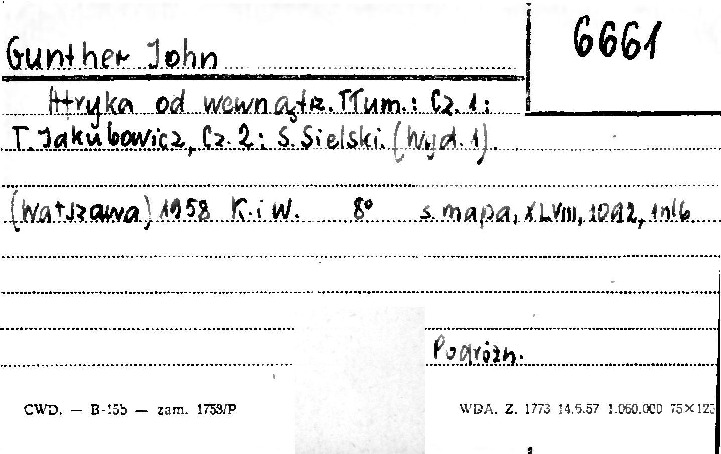 6661
Gunther John
Afryka od wewnątrz. Tłum.: Cz. 1:
T. Jakubowicz, Cz. 2: S. Sielski. (Wyd. 1).
(Warszawa) 1958 K. i W. 8° s. mapa, XLVIII, 1092, 1nlb
Podróżn.
CWD. — B-15b — zam. 1753/P
WDA. Z. 1773 14.5.57 1.060.000 75×125